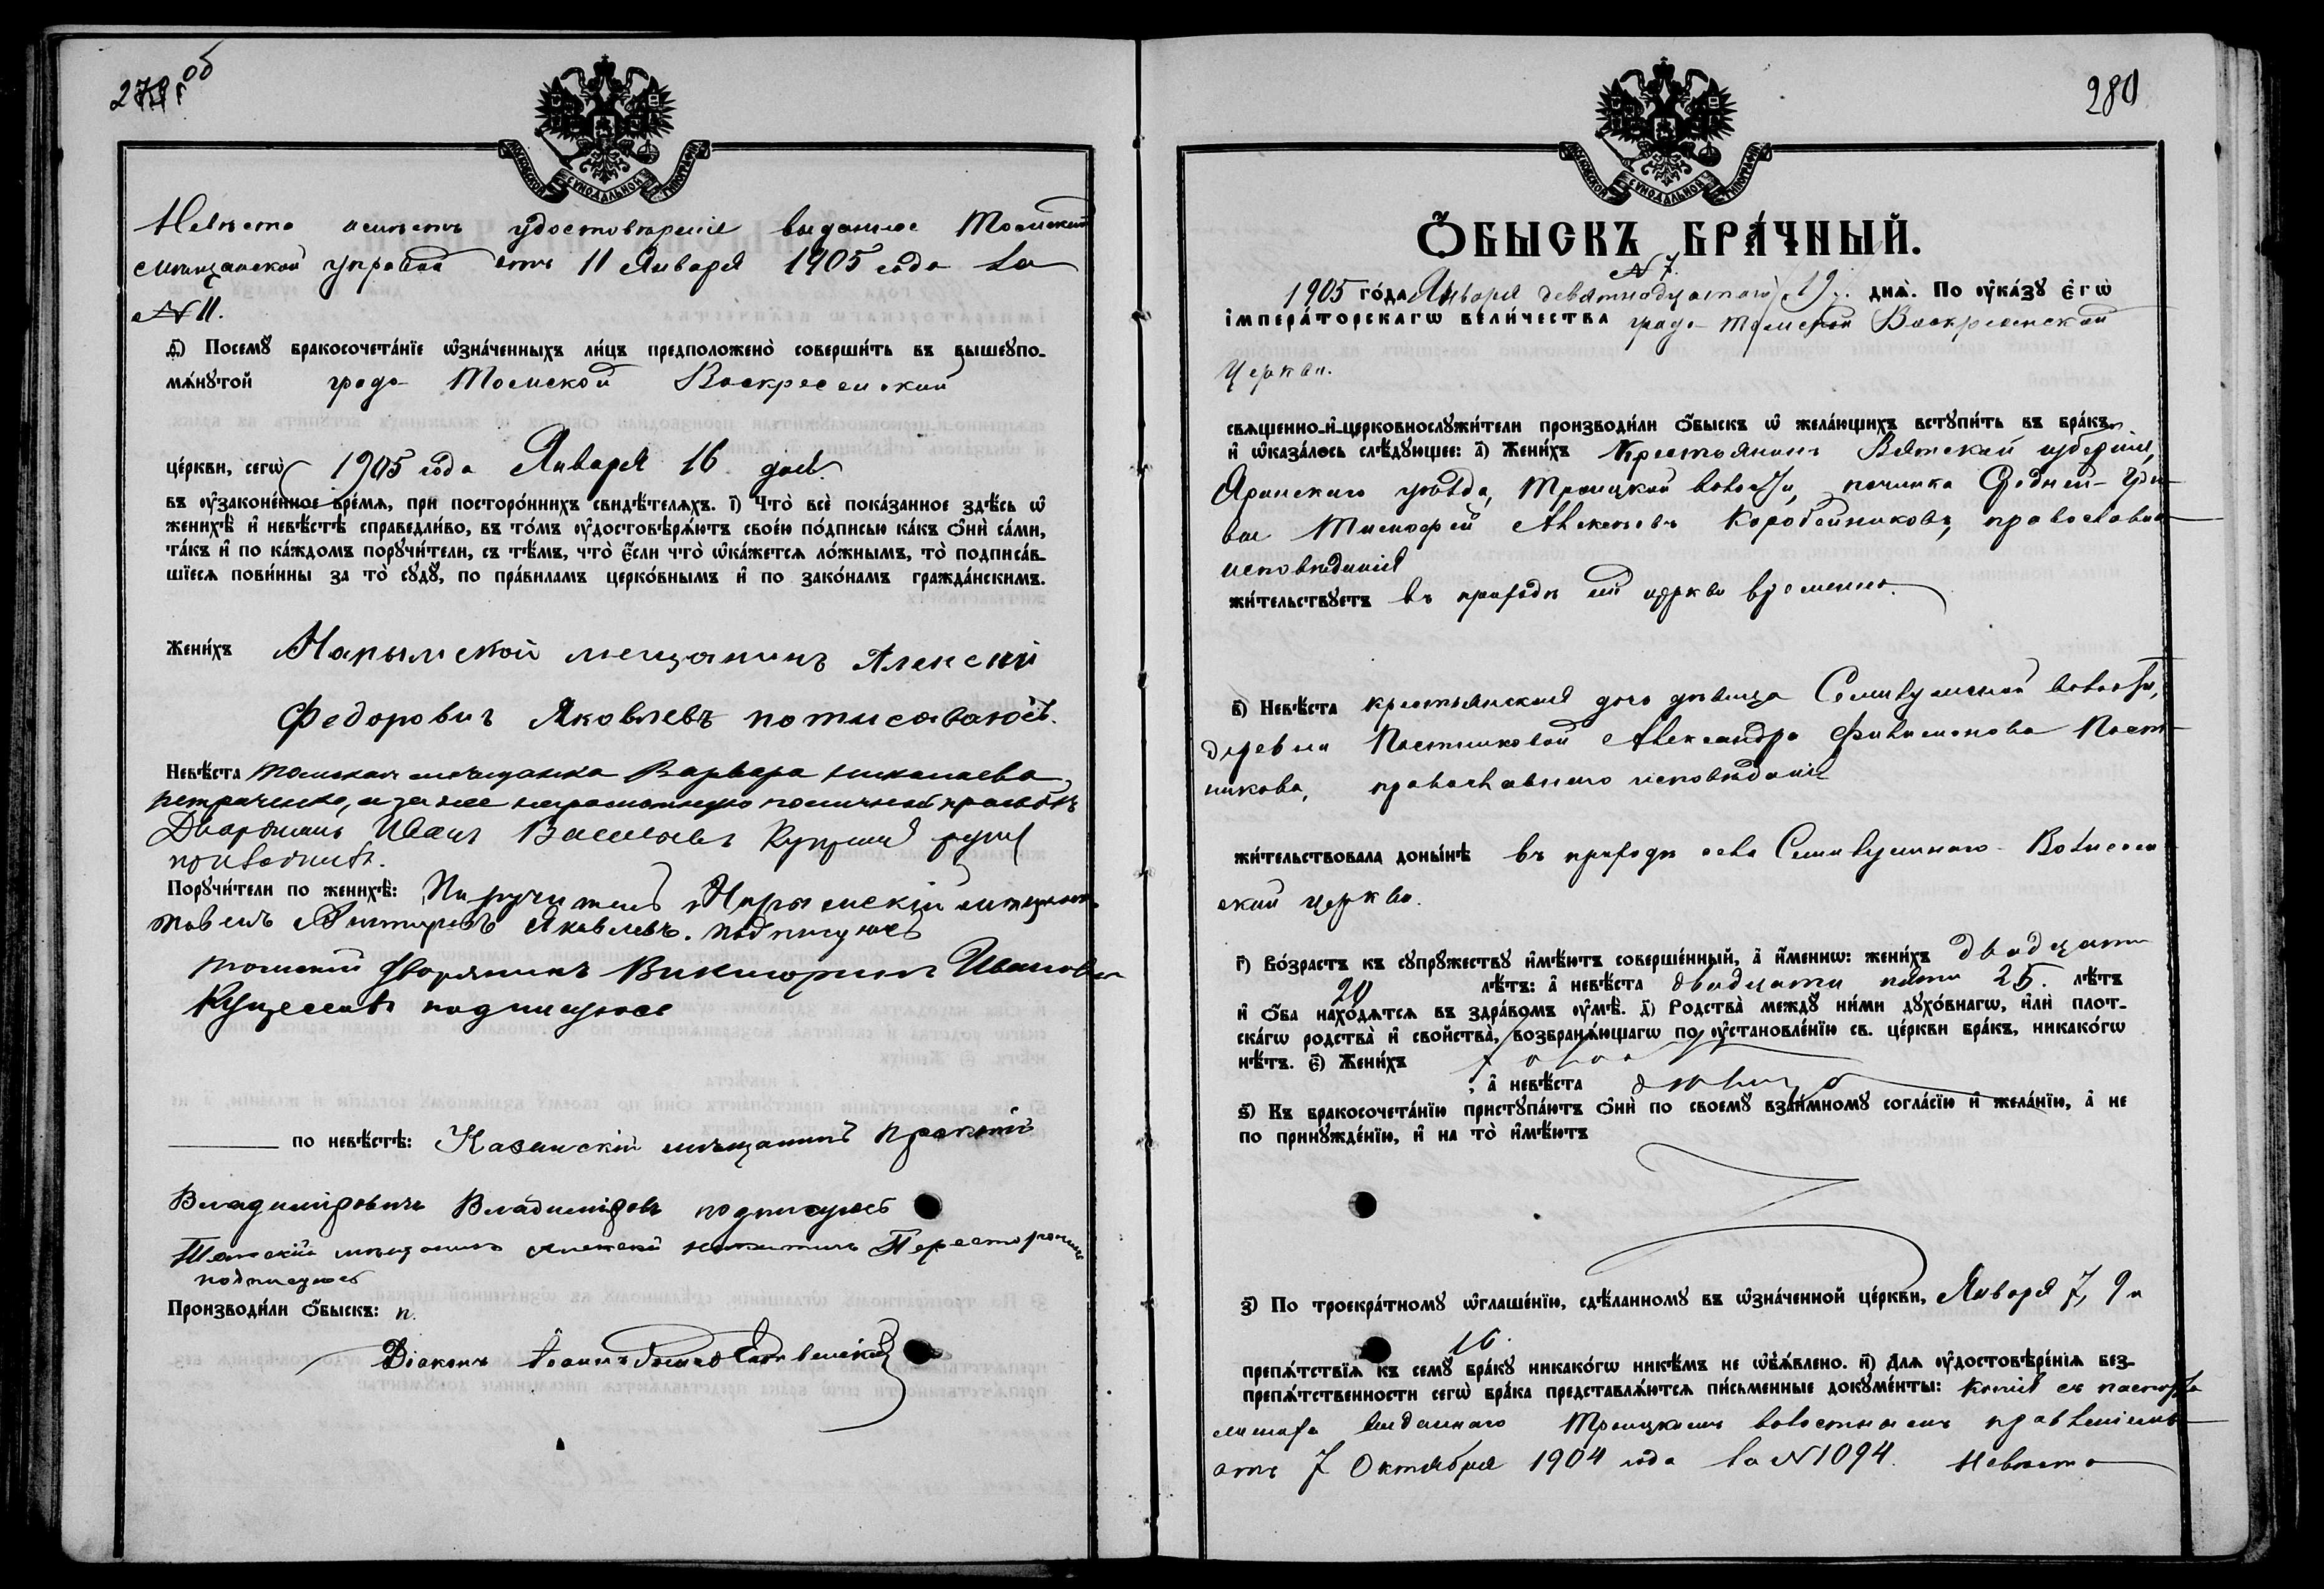 279 об
МОСКОВСКОЙ СѴНОДАЛЬНОЙ ТИПОГРАФІИ
Невѣста имѣетъ удостовѣреніе выданное Томской
мѣщанской управой отъ 11 Января 1905 года за
№ 11.
д҃) Посемꙋ бракосочета́нїе ѡ҆зна́ченныхъ ли́цъ предположено̀ соверши́ть въ вышеꙋпо-
мѧ́нꙋтой градо-Томской Воскресенской
це́ркви, сегѡ̀ 1905 года Января 16 дня.
въ ᲂу҆законе́нное вре́мѧ, при посторо́ннихъ свидѣ́телѧхъ. і҃) Что̀ всѐ пока́занное здѣ́сь ѡ҆
женихѣ̀ и҆ невѣ́стѣ справедли́во, въ то́мъ ᲂу҆достовѣрѧ́ютъ свое́ю по́дписью ка́къ ѻ҆нѝ са́ми,
та́къ и҆ по ка́ждомъ порꙋчи́тели, съ тѣ́мъ, что̀ є҆́сли что̀ ѡ҆ка́жетсѧ ло́жнымъ, то̀ подписа́в-
шїесѧ пови́нны за то̀ сꙋдꙋ̀, по пра́виламъ церко́внымъ и҆ по зако́намъ гражда́нскимъ.
Жени́хъ Нарымской мещанинъ Алексей
Федоровичъ Яковлевъ потписоваюсь.
Невѣ́ста томская мѣщанка Варвара николаева
петраченко, а за нее неграмотную по личной просьбѣ
Дворянинъ Иванъ Васильевъ
приложилъ.
Порꙋчи́тели по женихѣ̀: Паручитель Нарымскій мещанинъ
Яковлевъ. подписуюсь
томскій дворянинъ Викторинъ Ивановъ
подписуюсь
по невѣ́стѣ: Казанскій мѣщанинъ
Владиміровичъ Владиміровъ подписуюсь
Томскій мѣщанинъ Алексей
подписуюсь
Производи́ли ѻ҆́быскъ: п.
Діаконъ Іоаннъ
280
МОСКОВСКОЙ СѴНОДАЛЬНОЙ ТИПОГРАФІИ
Ѻ҆́БЫСКЪ БРА́ЧНЫЙ.
№ 7.
1905 го́да Января девятнадцатаго 19. днѧ̀. По ᲂу҆ка́зꙋ є҆гѡ̀
і҆мпера́торскагѡ вели́чества градо-Томской Воскресенской
Церкви.
свѧщенно-и҆-церковнослꙋжи́тели производи́ли ѻ҆́быскъ ѡ҆ жела́ющихъ встꙋпи́ть въ бра́къ,
и҆ ѡ҆каза́лось слѣ́дꙋющее: а҃) Жени́хъ Крестьянинъ Вятской губерніи,
Яранскаго уѣзда, Троицкой волости, починка
Тимофей Алексѣевъ Коробейниковъ, православнаго
исповѣданія
жи́тельствꙋетъ въ приходѣ сей церкви временно.
в҃) Невѣ́ста крестьянская дочь дѣвица Семилужной волости,
деревни Постниковой Александра Филимонова Пост-
никова, православнаго исповѣданія
жи́тельствовала доны́нѣ въ приходѣ села Семилужнаго
ской церкви.
г҃) Во́зрастъ къ сꙋпрꙋ́жествꙋ и҆мѣ́ютъ соверше́нный, а҆ и҆́менно: жени́хъ двадцати
20 лѣ́тъ: а҆ невѣ́ста двадцати пяти 25. лѣ́тъ
и҆ ѻ҆́ба нахо́дѧтсѧ въ здра́вомъ ᲂу҆мѣ̀. д҃) Родства̀ междꙋ̀ ни́ми дꙋхо́внагѡ, и҆лѝ плот-
ска́гѡ родства̀ и҆ сво́йства, возбранѧ́ющагѡ по ᲂу҆становле́нїю св. це́ркви бра́къ, никако́гѡ
нѣ́тъ. є҃) Жени́хъ холост
; а҆ невѣ́ста дѣвица
ѕ҃) Къ бракосочета́нїю пристꙋпа́ютъ ѻ҆нѝ по своемꙋ̀ взаи́мномꙋ согла́сїю и҆ жела́нїю, а҆ не
по принꙋжде́нїю, и҆ на то̀ и҆мѣ́ютъ
з҃) По троекра́тномꙋ ѡ҆глаше́нїю, сдѣ́ланномꙋ въ ѡ҆зна́ченной це́ркви, Января 7, 9 и
16.
препѧ́тствїѧ къ семꙋ̀ бра́кꙋ никако́гѡ никѣ́мъ не ѡ҆б̾ѧ́влено. и҃) Длѧ ᲂу҆достовѣре́нїѧ без-
препѧ́тственности сегѡ̀ бра́ка представлѧ́ютсѧ пи́сьменные докꙋме́нты: копія съ паспорта
выданнаго Троицкимъ волостнымъ правленіемъ
отъ 7 Октября 1904 года за № 1094. Невѣста